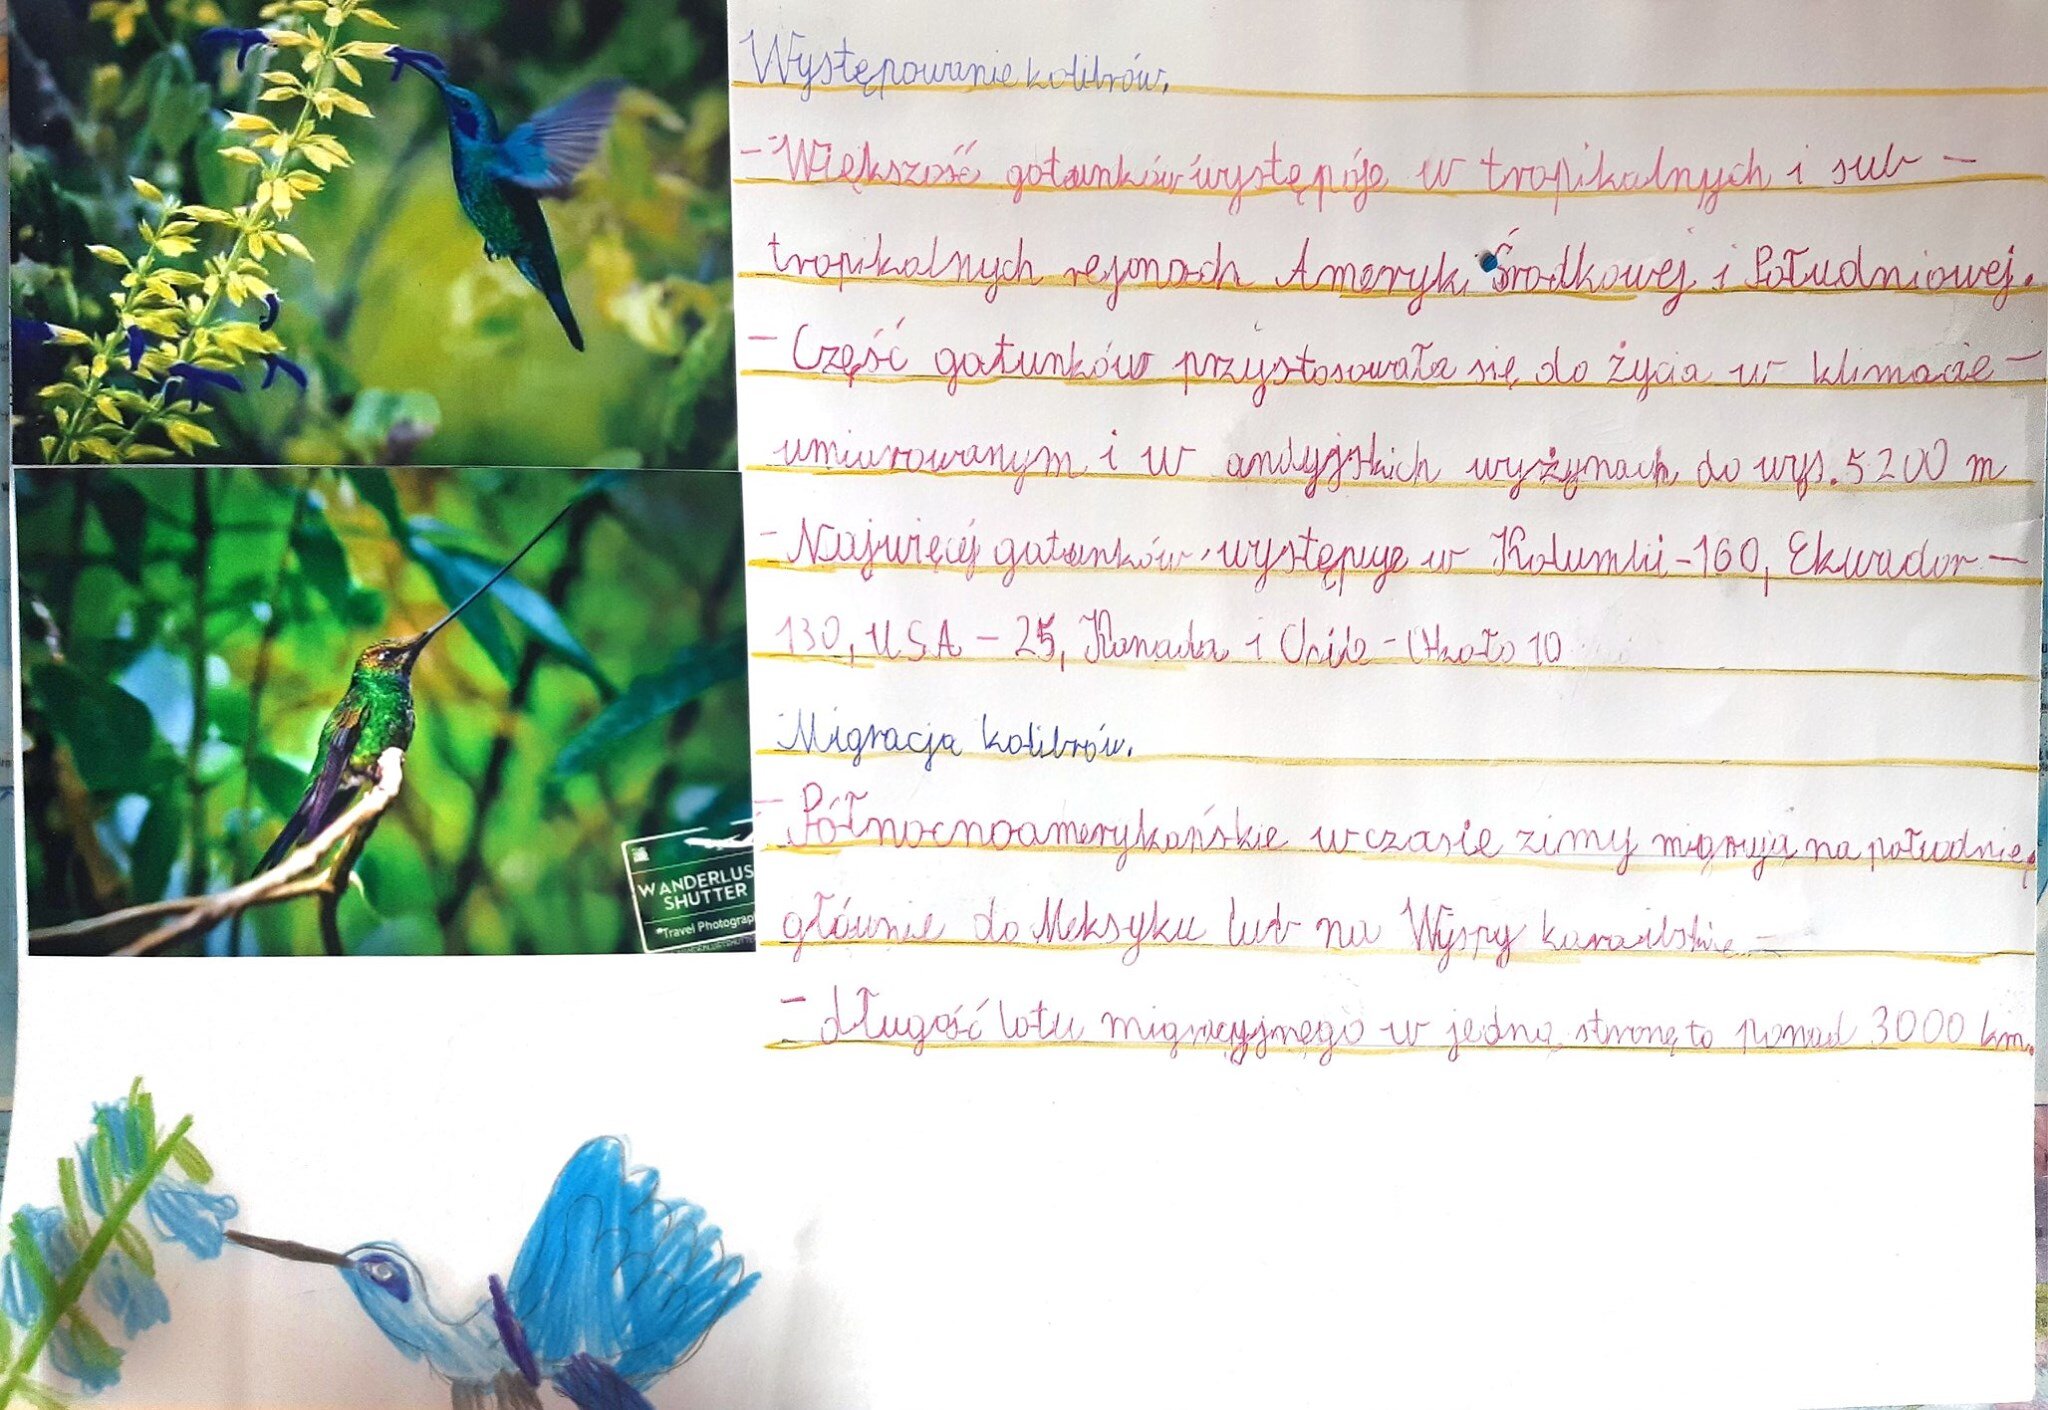 Występowanie kolibrów.
- Większość gatunków występóje w tropikalnych i sub -
tropikalnych rejonach Ameryki Środkowej i Południowej.
- Część gatunków przystosowała się do życia w klimacie -
umiarowanym i w andyjskich wyżynach do wys. 5200 m
- Najwięcej gatunków występuje w Kolumbii - 160, Ekwador -
130, USA - 25, Kanada i Chile - Około 10
Migracja kolibrów.
- Północnoamerykańskie w czasie zimy migrują na południe,
głównie do Meksyku lub na Wyspy karaibskie -
- długość lotu migracyjnego w jedną stronę to ponad 3000 km.
WANDERLUS
SHUTTER
Travel Photograp